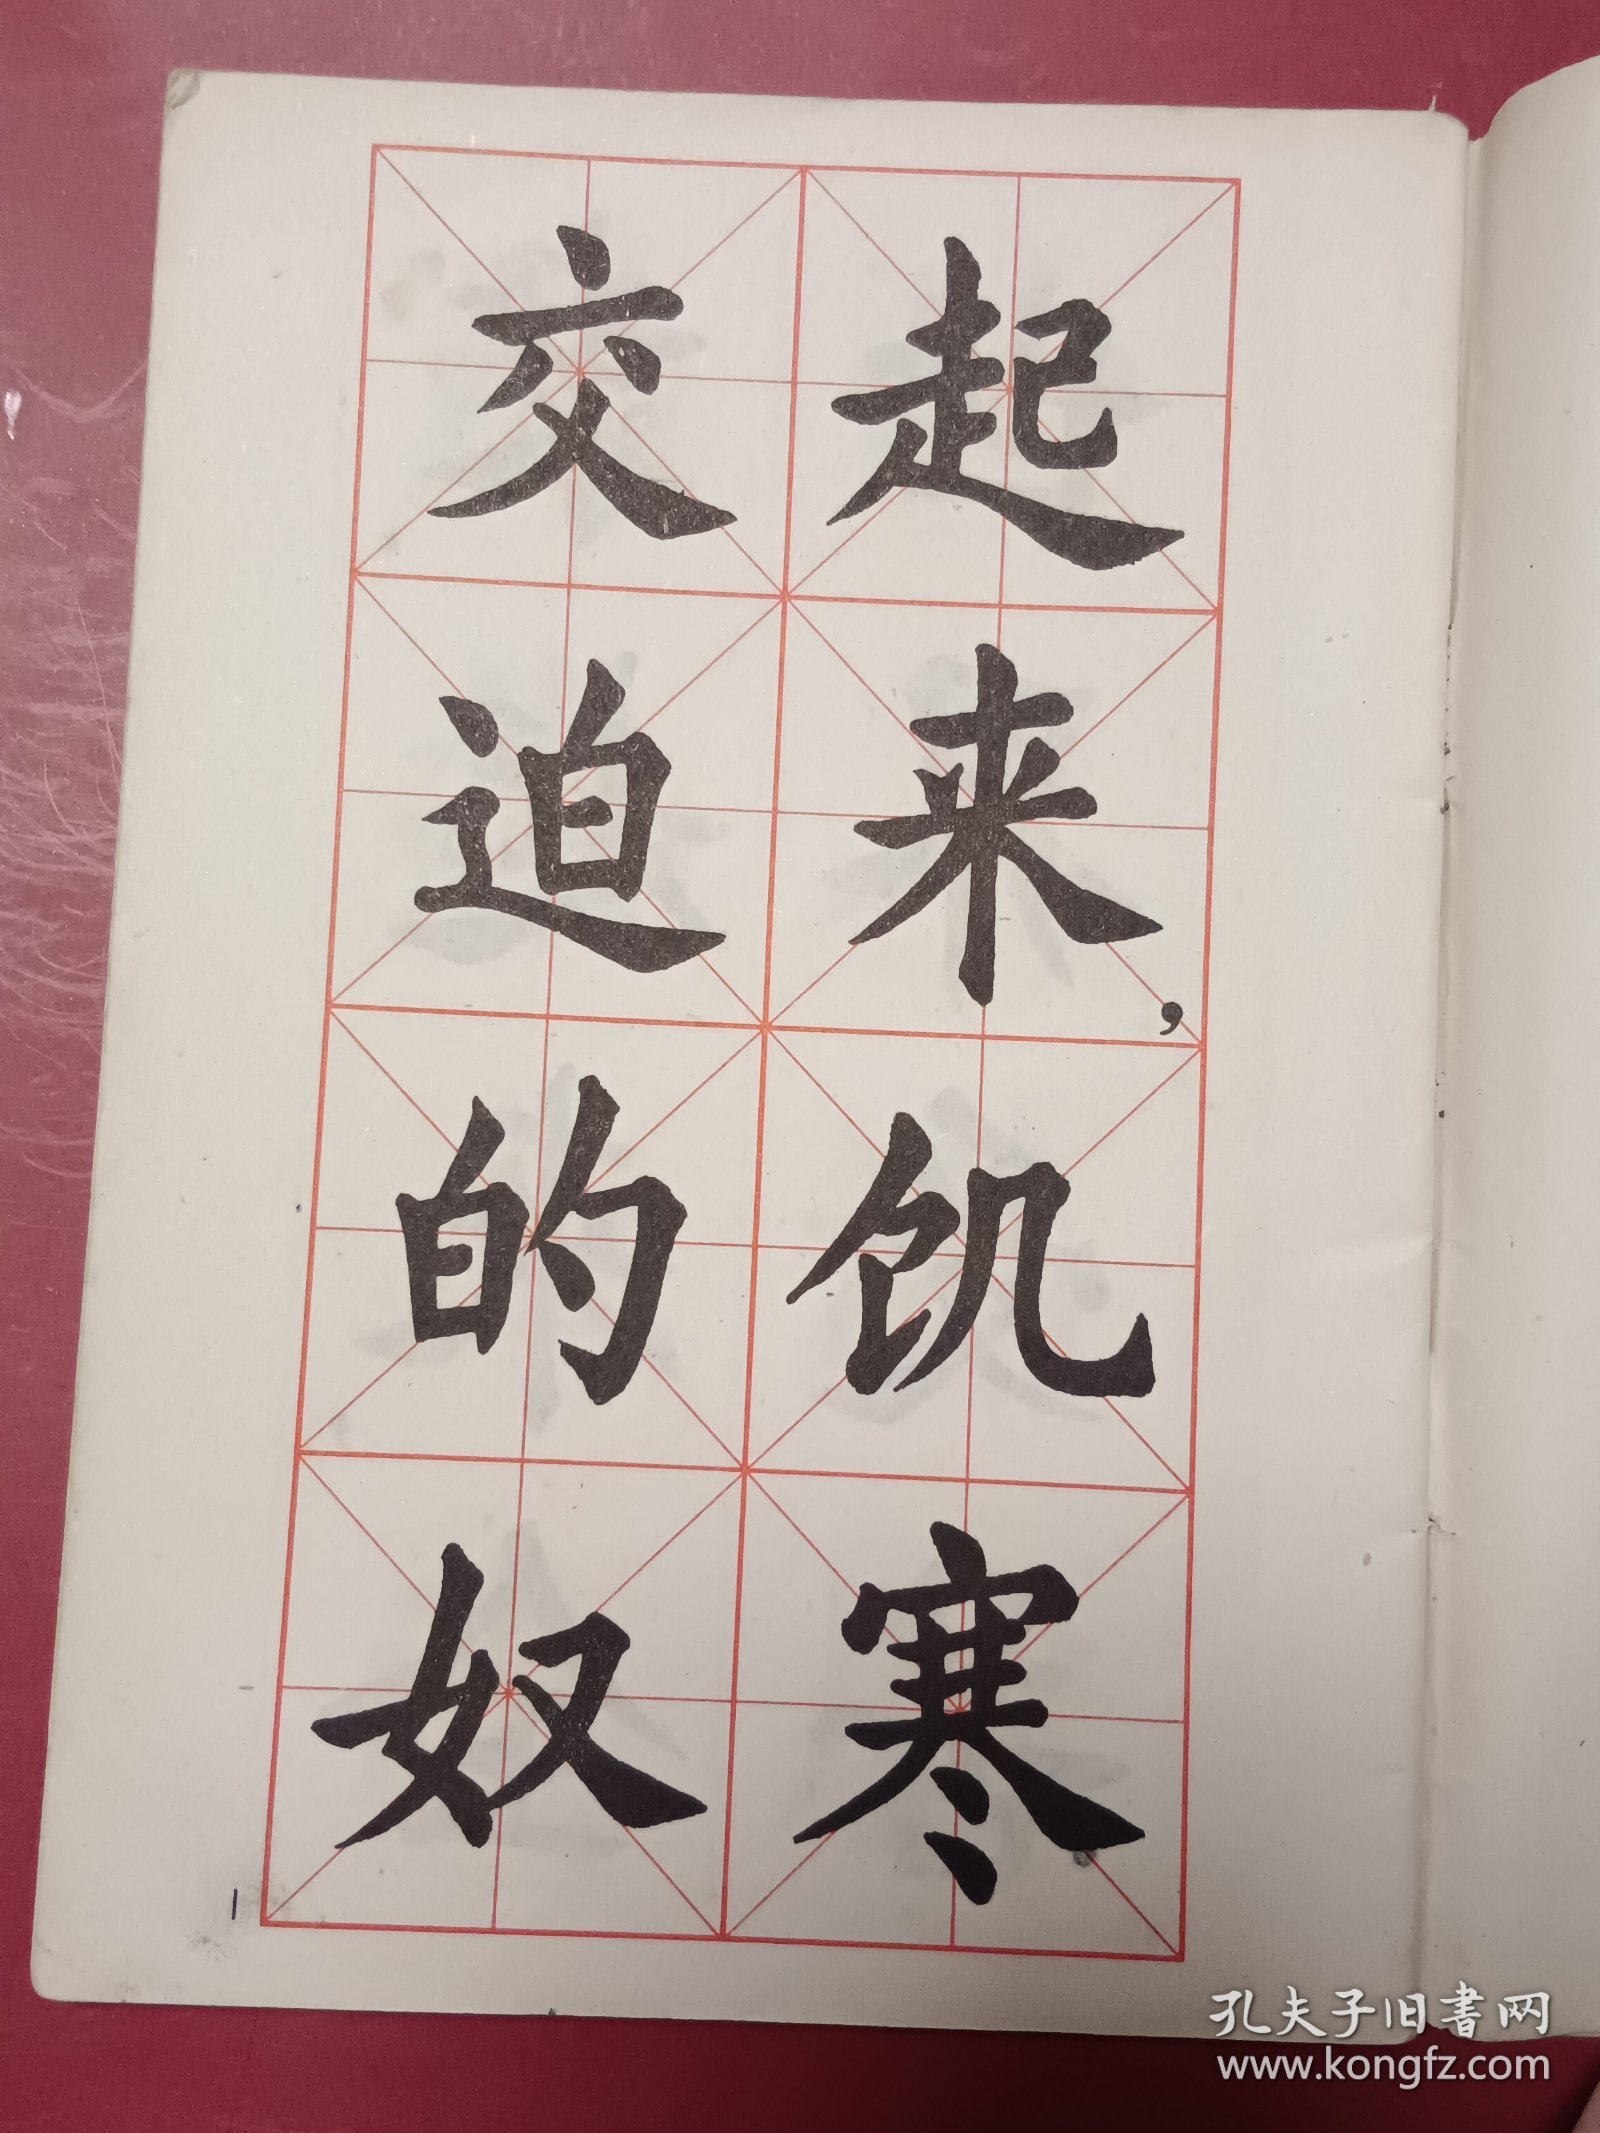 起来，饥寒
交迫的奴
1
孔夫子旧书网
www.kongfz.com